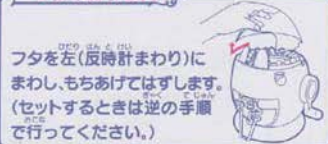 フタを左(反時計まわり)に
まわし、もちあげてはずします。
(セットするときは逆の手順
で行ってください。)